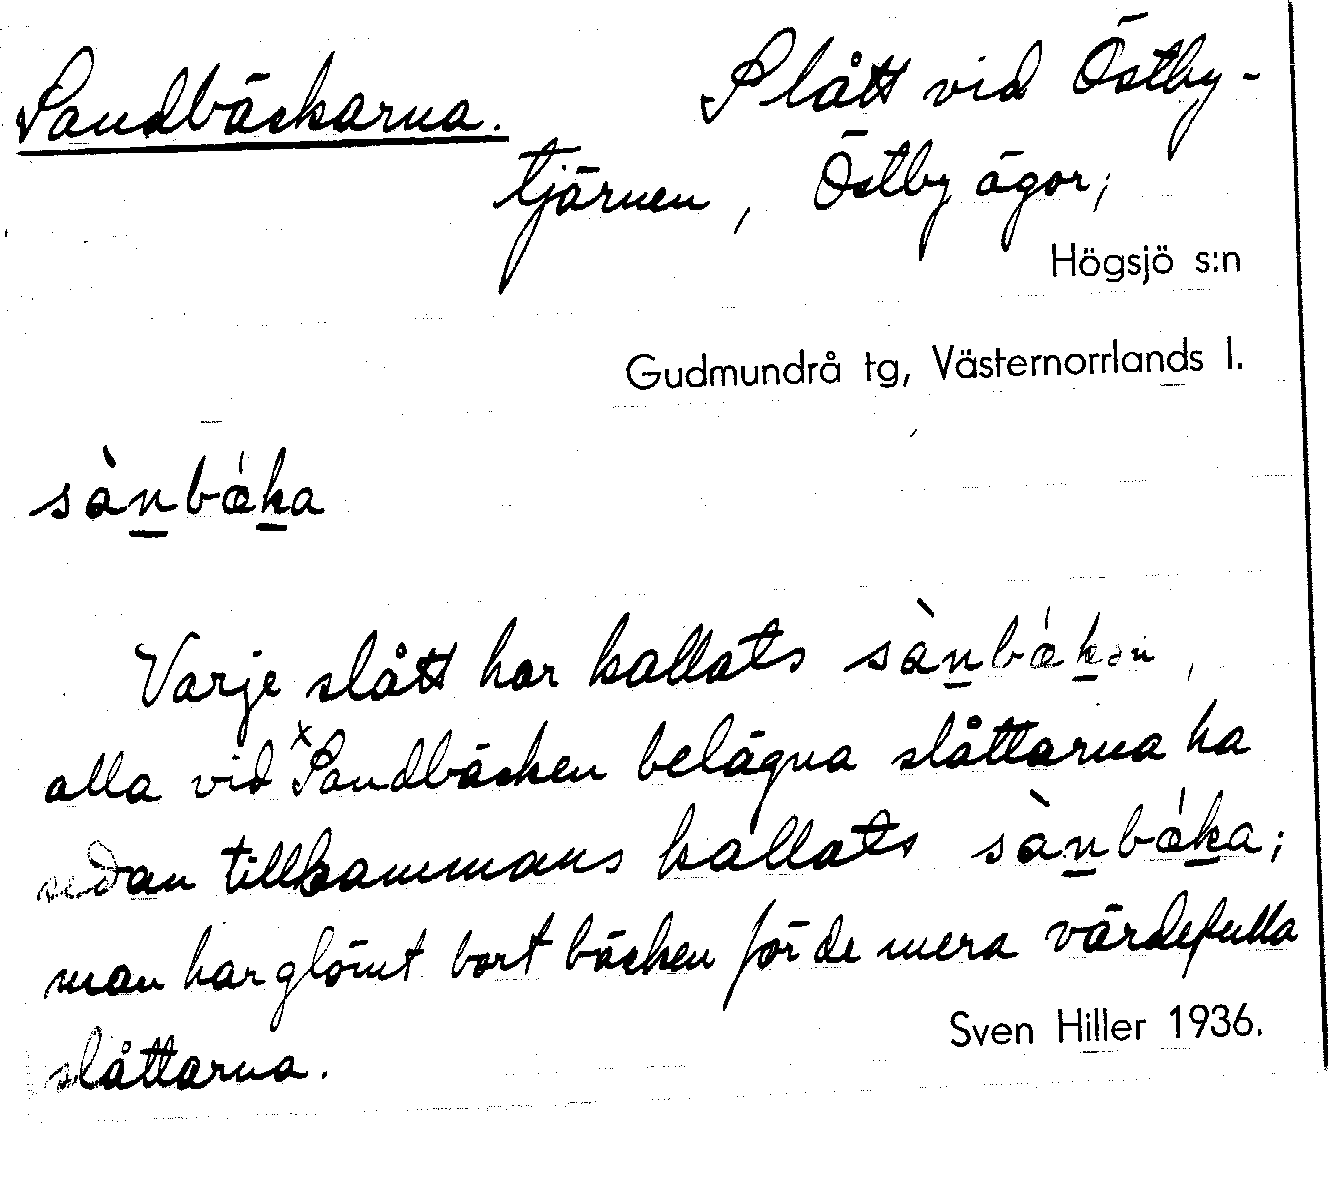 Sandbäckarna. Slått vid Östby-
tjärnen, Östby ägor;
Högsjö s:n
Gudmundrå tg, Västernorrlands l.
sànbǽka
Varje slått har kallats sànbǽkan,
alla vid ˣSandbäcken belägna slåttarna ha
sedan tillsammans kallats sànbǽka;
man har glömt bort bäcken för de mera värdefulla
slåttarna.
Sven Hiller 1936.